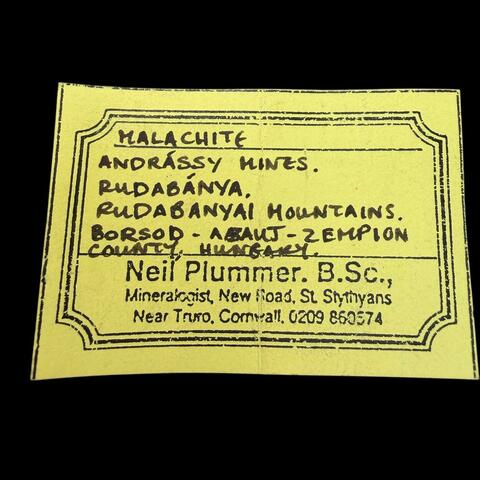 MALACHITE
ANDRÁSSY MINES.
RUDABÁNYA.
RUDABANYAI MOUNTAINS.
BORSOD - ABAUJ - ZEMPION
COUNTY, HUNGARY.
Neil Plummer. B.Sc.,
Mineralogist, New Road, St. Stythyans
Near Truro, Cornwall, 0209 860574